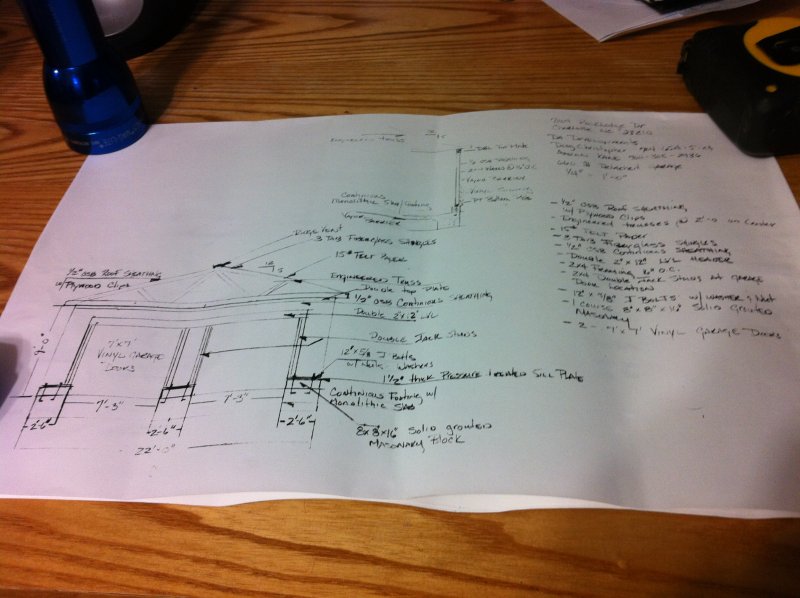 Engineered Truss
12/5
1/2" OSB Sheathing
Vapor Barrier
Vinyl Siding
Continuous
Monolithic Slab/Footing
Vapor Barrier
Ridge Vent
3 Tab Fiberglass Shingles
15# Felt Paper
1/2" OSB Roof Sheathing
w/Plywood Clips
12/5
Engineered Truss
Double Top Plate
1/2" OSB Continous Sheathing
Double 2x12 LVL
Double Jack Studs
7'x7'
Vinyl Garage
Doors
12" x 5/8 J Bolts
w/ Nuts, Washers
1 1/2" thick Pressure Located Sill Plate
Continuous Footing w/
Monolithic Slab
8x8x16" Solid grouted
Masonary Block
7'-3"
7'-3"
2'-6"
2'-6"
2'-6"
DA Developments
660 # Detached Garage
1/4" = 1'-0"
- 1/2" OSB Roof Sheathing
w/ Plywood Clips
- Engineered trusses @ 2'-0 on Center
- 15# Felt Paper
- 3 Tab Fiberglass Shingles
- 1/2" OSB Continuous Sheathing
- Double 2"x12" LVL Header
- 2x4 Framing 16" O.C.
- 2x4 Double Jack Studs at Garage
Door Location
- 12"x5/8" J Bolts w/ Washer & Nut
- 1 Course 8"x8"x16" Solid Grouted
Masonary
- 2 - 7'x7' Vinyl Garage Doors